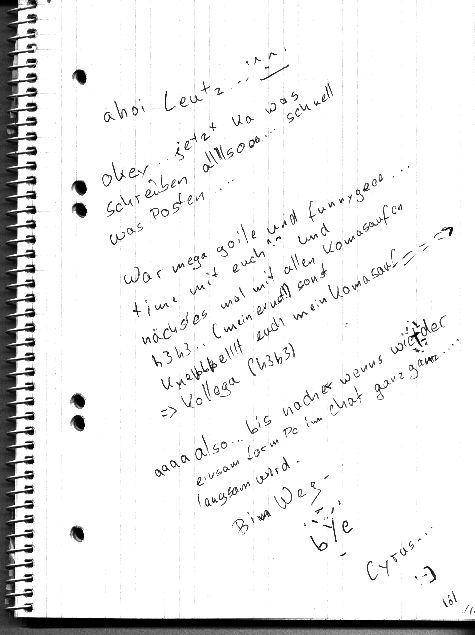 ahoi Leutz...:^^:
okey... jetzt ka was
schreiben alllsooo... schnell
was Posten....
War mega goile und funnygeee...
time mit euch^^ und
nächstes mal mit allen Komasaufen
h3h3... (mein ernst) sonst
euch mein Komasauf ===>
=> Kollega (h3h3)
aaaa also... bis nacher wenns wieder
einsam vorm Pc im chat ganz ganz....
langsam wird.
Bin Weg--
bye
Cyrus...
:-)